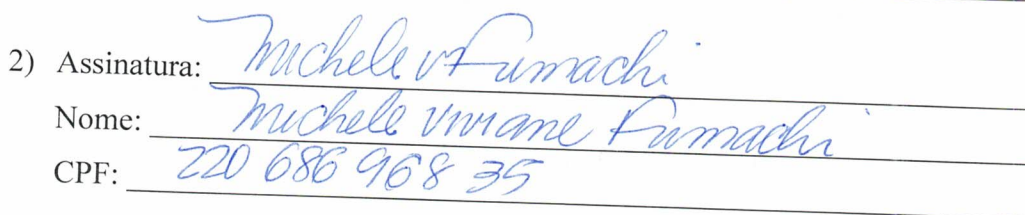 2) Assinatura: Michele V Fumachi
Nome: Michele Viviane Fumachi
CPF: 220 686 968 35